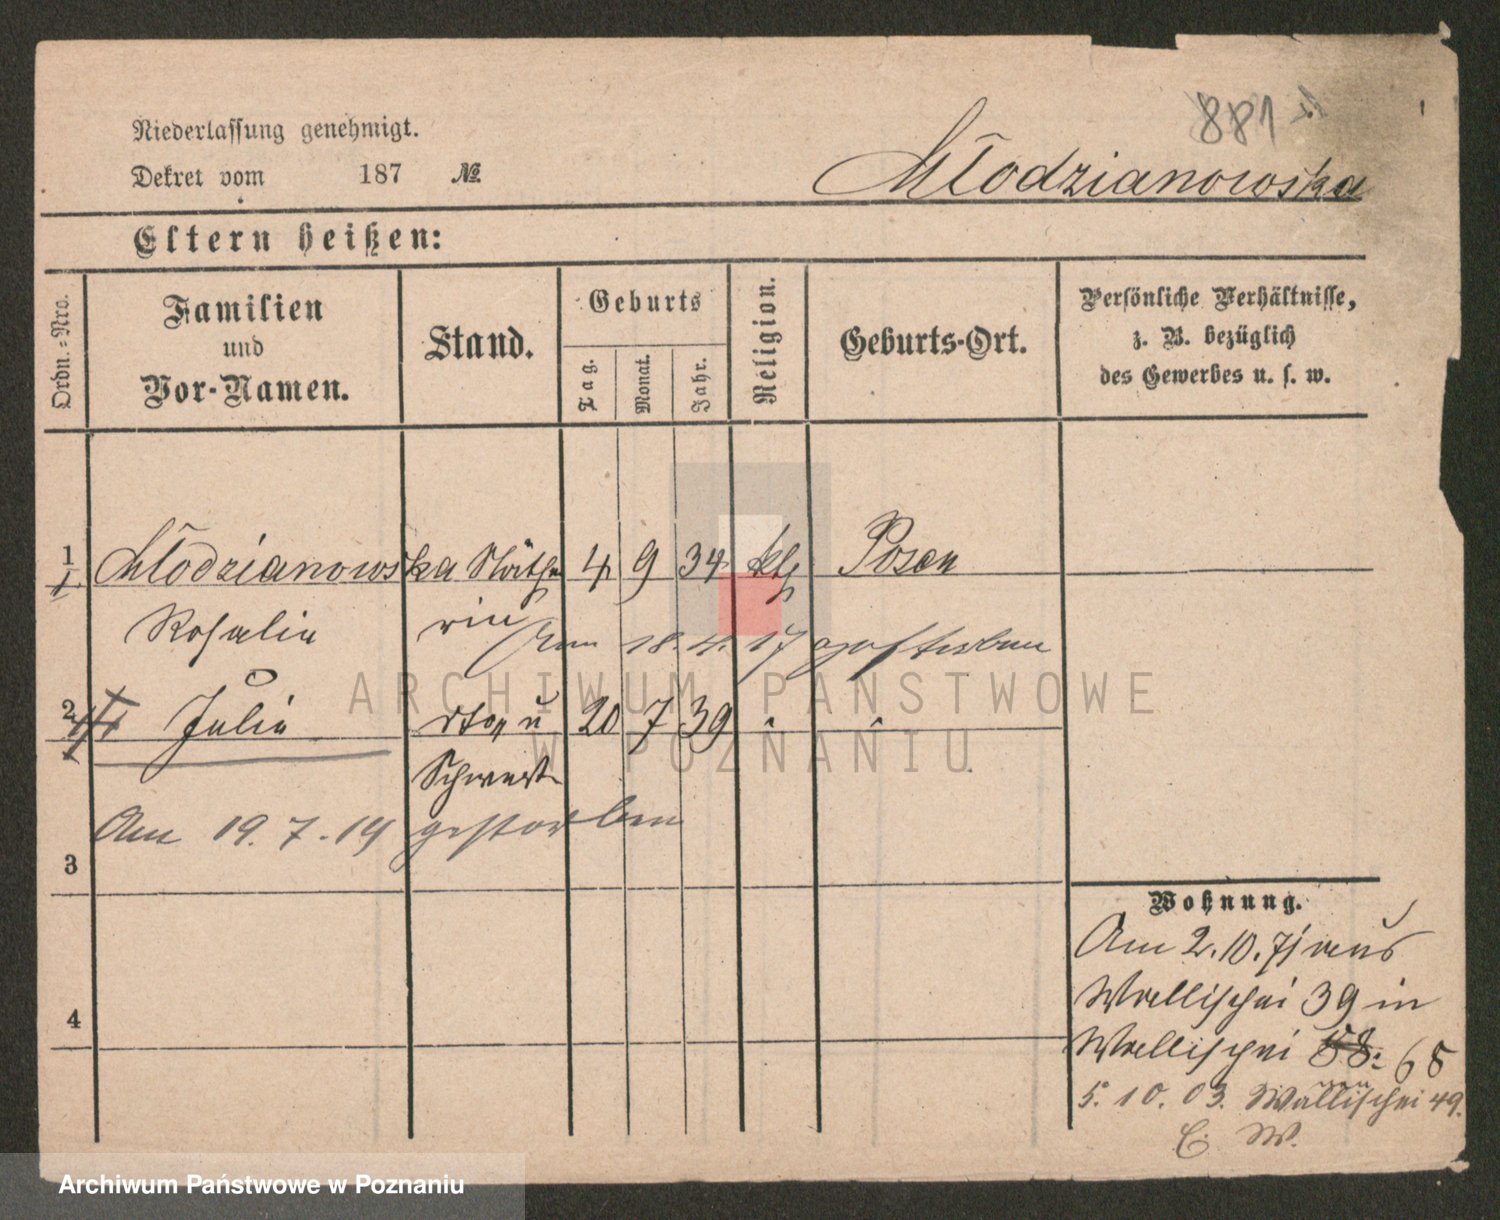 881
Niederlassung genehmigt.
Dekret vom 187 №
Młodzianowska
Eltern heißen:
Ordn.-Nro.
Familien und Vor-Namen.
Stand.
Geburts
Tag.
Monat.
Jahr.
Religion.
Geburts-Ort.
Persönliche Verhältnisse,
z. B. bezüglich
des Gewerbes u. s. w.
1 Młodzianowska Näthe 4 9 34 kth Posen
Rosalia rin
Am 18. 4. 17 gestorben
2 Julia dto u 20 7 39 " "
Schwest
Am 19. 7. 14 gestorben
3
4
Wohnung.
Am 2. 10. 71 aus
Wallischei 39 in
Wallischei 58: 68
5. 10. 03. Wallischei 49.
E. W.
ARCHIWUM PAŃSTWOWE
W POZNANIU
Archiwum Państwowe w Poznaniu